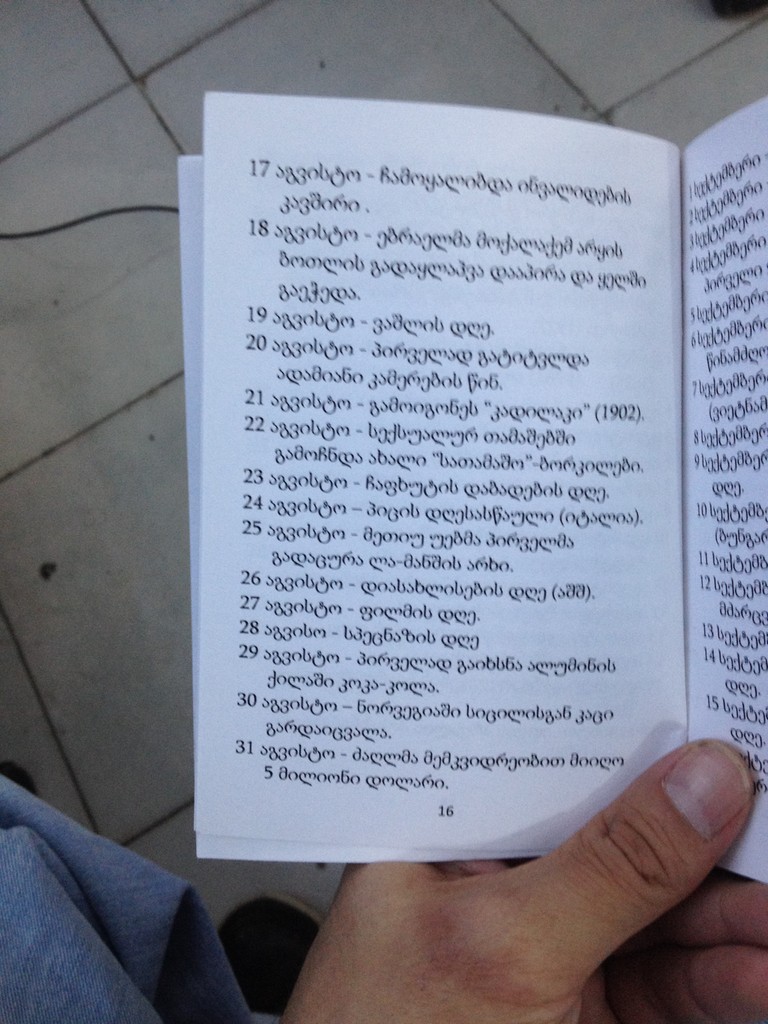 17 აგვისტო - ჩამოყალიბდა ინვალიდების
კავშირი .
18 აგვისტო - ებრაელმა მოქალაქემ არყის
ბოთლის გადაყლაპვა დააპირა და ყელში
გაეჭედა.
19 აგვისტო - ვაშლის დღე.
20 აგვისტო - პირველად გატიტვლდა
ადამიანი კამერების წინ.
21 აგვისტო - გამოიგონეს "კადილაკი" (1902).
22 აგვისტო - სექსუალურ თამაშებში
გამოჩნდა ახალი "სათამაშო"-ბორკილები.
23 აგვისტო - ჩაფხუტის დაბადების დღე.
24 აგვისტო – პიცის დღესასწაული (იტალია).
25 აგვისტო - მეთიუ უებმა პირველმა
გადაცურა ლა-მანშის არხი.
26 აგვისტო - დიასახლისების დღე (აშშ).
27 აგვისტო - ფილმის დღე.
28 აგვისო - სპეცნაზის დღე
29 აგვისტო - პირველად გაიხსნა ალუმინის
ქილაში კოკა-კოლა.
30 აგვისტო – ნორვეგიაში სიცილისგან კაცი
გარდაიცვალა.
31 აგვისტო - ძაღლმა მემკვიდრეობით მიიღო
5 მილიონი დოლარი.
16
1 სექტემბერი -
2 სექტემბერი -
3 სექტემბერი
4 სექტემბერი
პირველი
5 სექტემბერი
6 სექტემბერი
7
8
9
დღე.
10
11
12
13
14
დღე.
15
დღე.